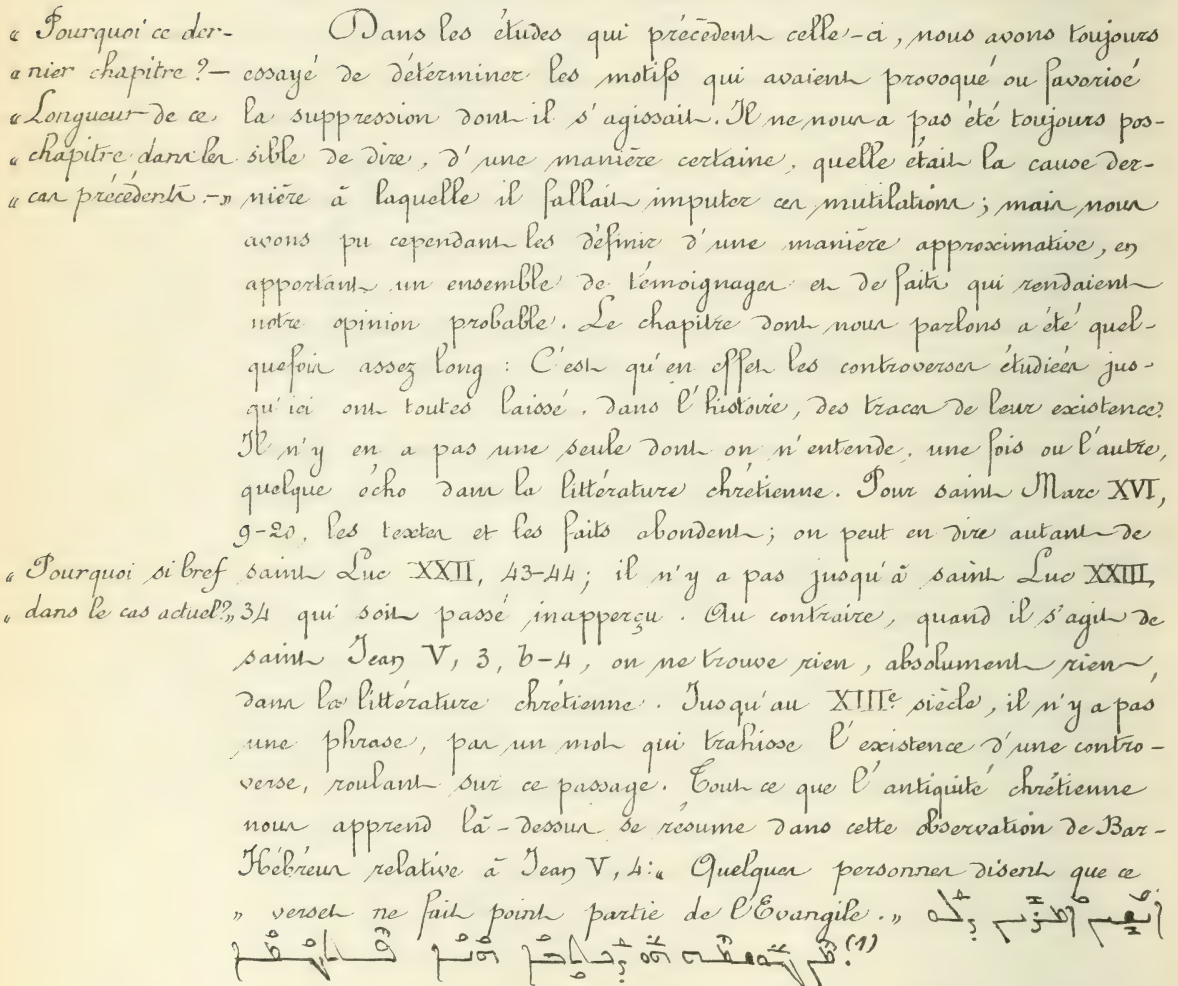 « Pourquoi ce der-
« nier chapitre ? —
« Longueur de ce
« chapitre dans les
« cas précédents. — »
Dans les études qui précèdent celle-ci, nous avons toujours
essayé de déterminer les motifs qui avaient provoqué ou favorisé
la suppression dont il s'agissait. Il ne nous a pas été toujours pos-
sible de dire, d'une manière certaine, quelle était la cause der-
nière à laquelle il fallait imputer ces mutilations ; mais nous
avons pu cependant les définir d'une manière approximative, en
apportant un ensemble de témoignages et de faits qui rendaient
notre opinion probable. Le chapitre dont nous parlons a été quel-
quefois assez long : C'est qu'en effet les controverses étudiées jus-
qu'ici ont toutes laissé, dans l'histoire, des traces de leur existence.
Il n'y en a pas une seule dont on n'entende, une fois ou l'autre,
quelque écho dans la littérature chrétienne. Pour saint Marc XVI,
9-20, les textes et les faits abondent ; on peut en dire autant de
« Pourquoi si bref
« dans le cas actuel ? »
saint Luc XXII, 43-44 ; il n'y a pas jusqu'à saint Luc XXIII,
34 qui soit passé inapperçu. Au contraire, quand il s'agit de
saint Jean V, 3, b-4, on ne trouve rien, absolument rien,
dans la littérature chrétienne. Jusqu'au XIIIe siècle, il n'y a pas
une phrase, pas un mot qui trahisse l'existence d'une contro-
verse, roulant sur ce passage. Tout ce que l'antiquité chrétienne
nous apprend là-dessus se résume dans cette observation de Bar-
Hébreus relative à Jean V, 4 : « Quelques personnes disent que ce
» verset ne fait point partie de l'Evangile. »
(1)